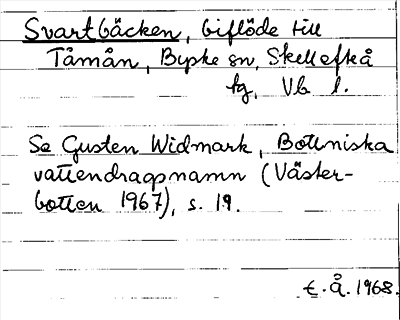 Svartbäcken, biflöde till
Tåmån, Byske sn, Skellefteå
tg, Vb l.
Se Gusten Widmark, Bottniska
vattendragsnamn (Väster-
botten 1967), s. 19.
E.Å. 1968.